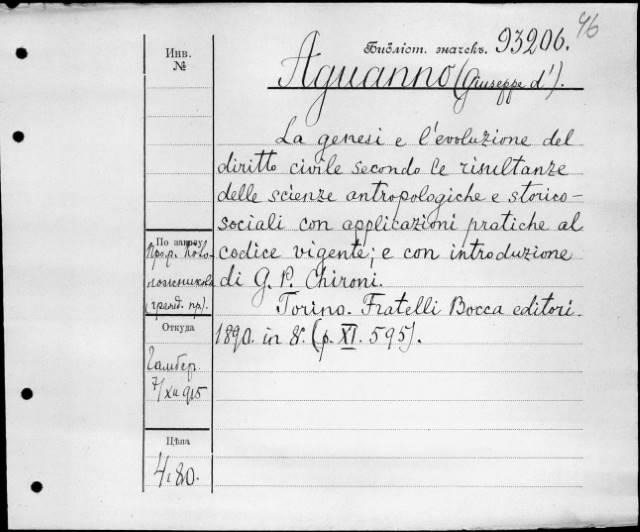 46
Инв.
№
Библіот. значекъ. 93206.
Aguanno (Giuseppe d').
La genesi e l'evoluzione del
diritto civile secondo le risultanze
delle scienze antropologiche e storico-
sociali con applicazioni pratiche al
codice vigente; e con introduzione
di G. P. Chironi.
Torino. Fratelli Bocca editori.
1890. in 8. (p. XI. 595).
По запросу
Проф.
(гражд. пр.).
Откуда
Гамбер.
7/XII 915
Цѣна
4.80.